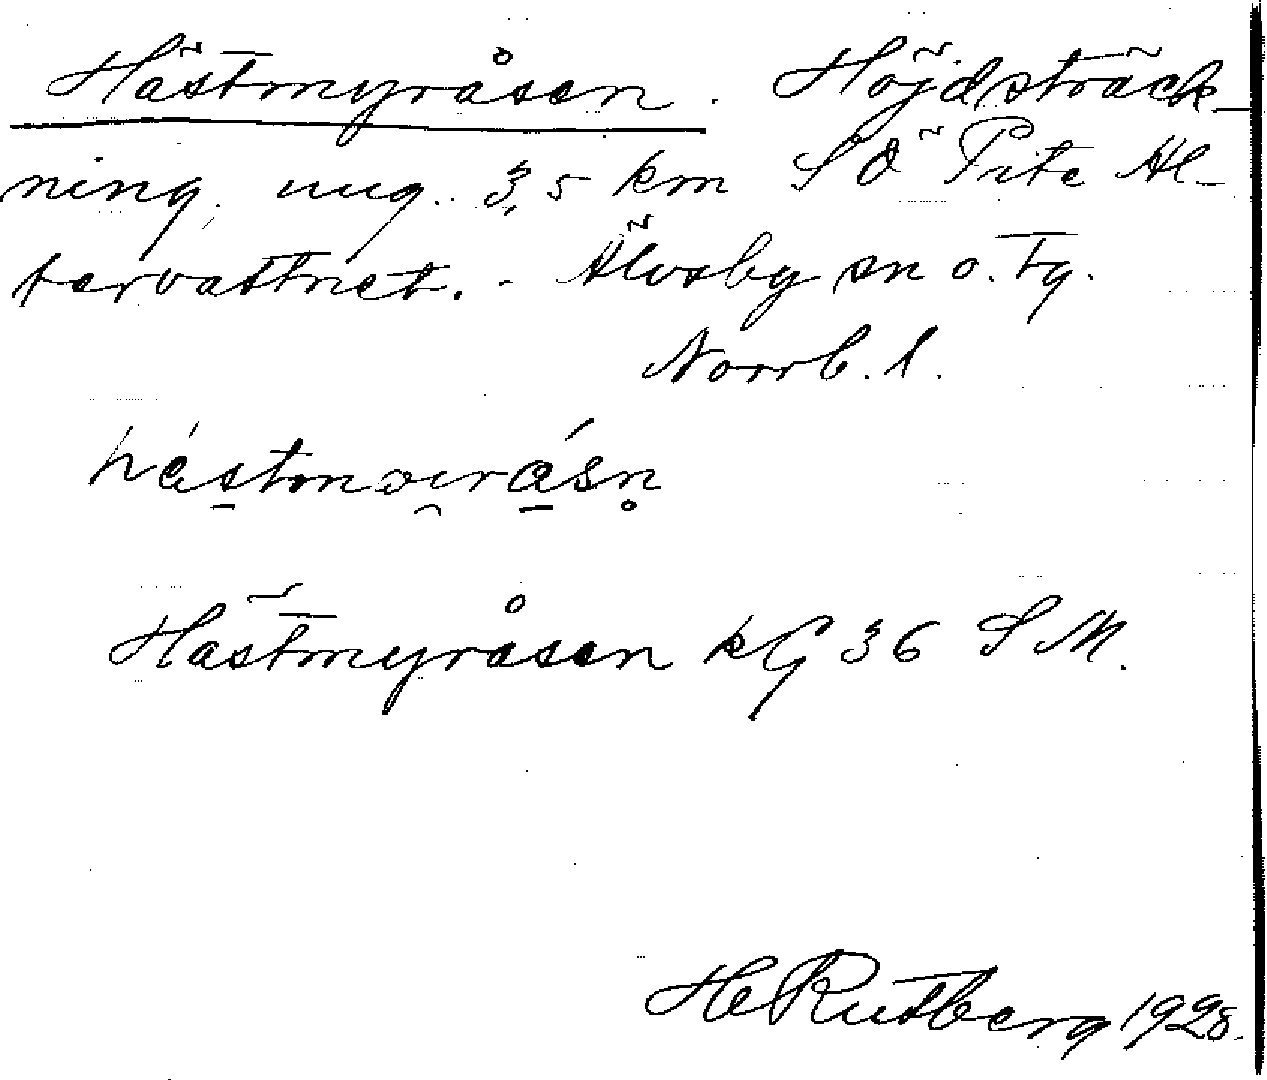 Hästmyråsen. Höjdsträck-
ning, ung. 3,5 km SÖ Pite Al-
tervattnet. - Älvsby sn o. tg.
Norrb. l.
Hästmyråsen kG 36 SM.
H Rutberg 1928.